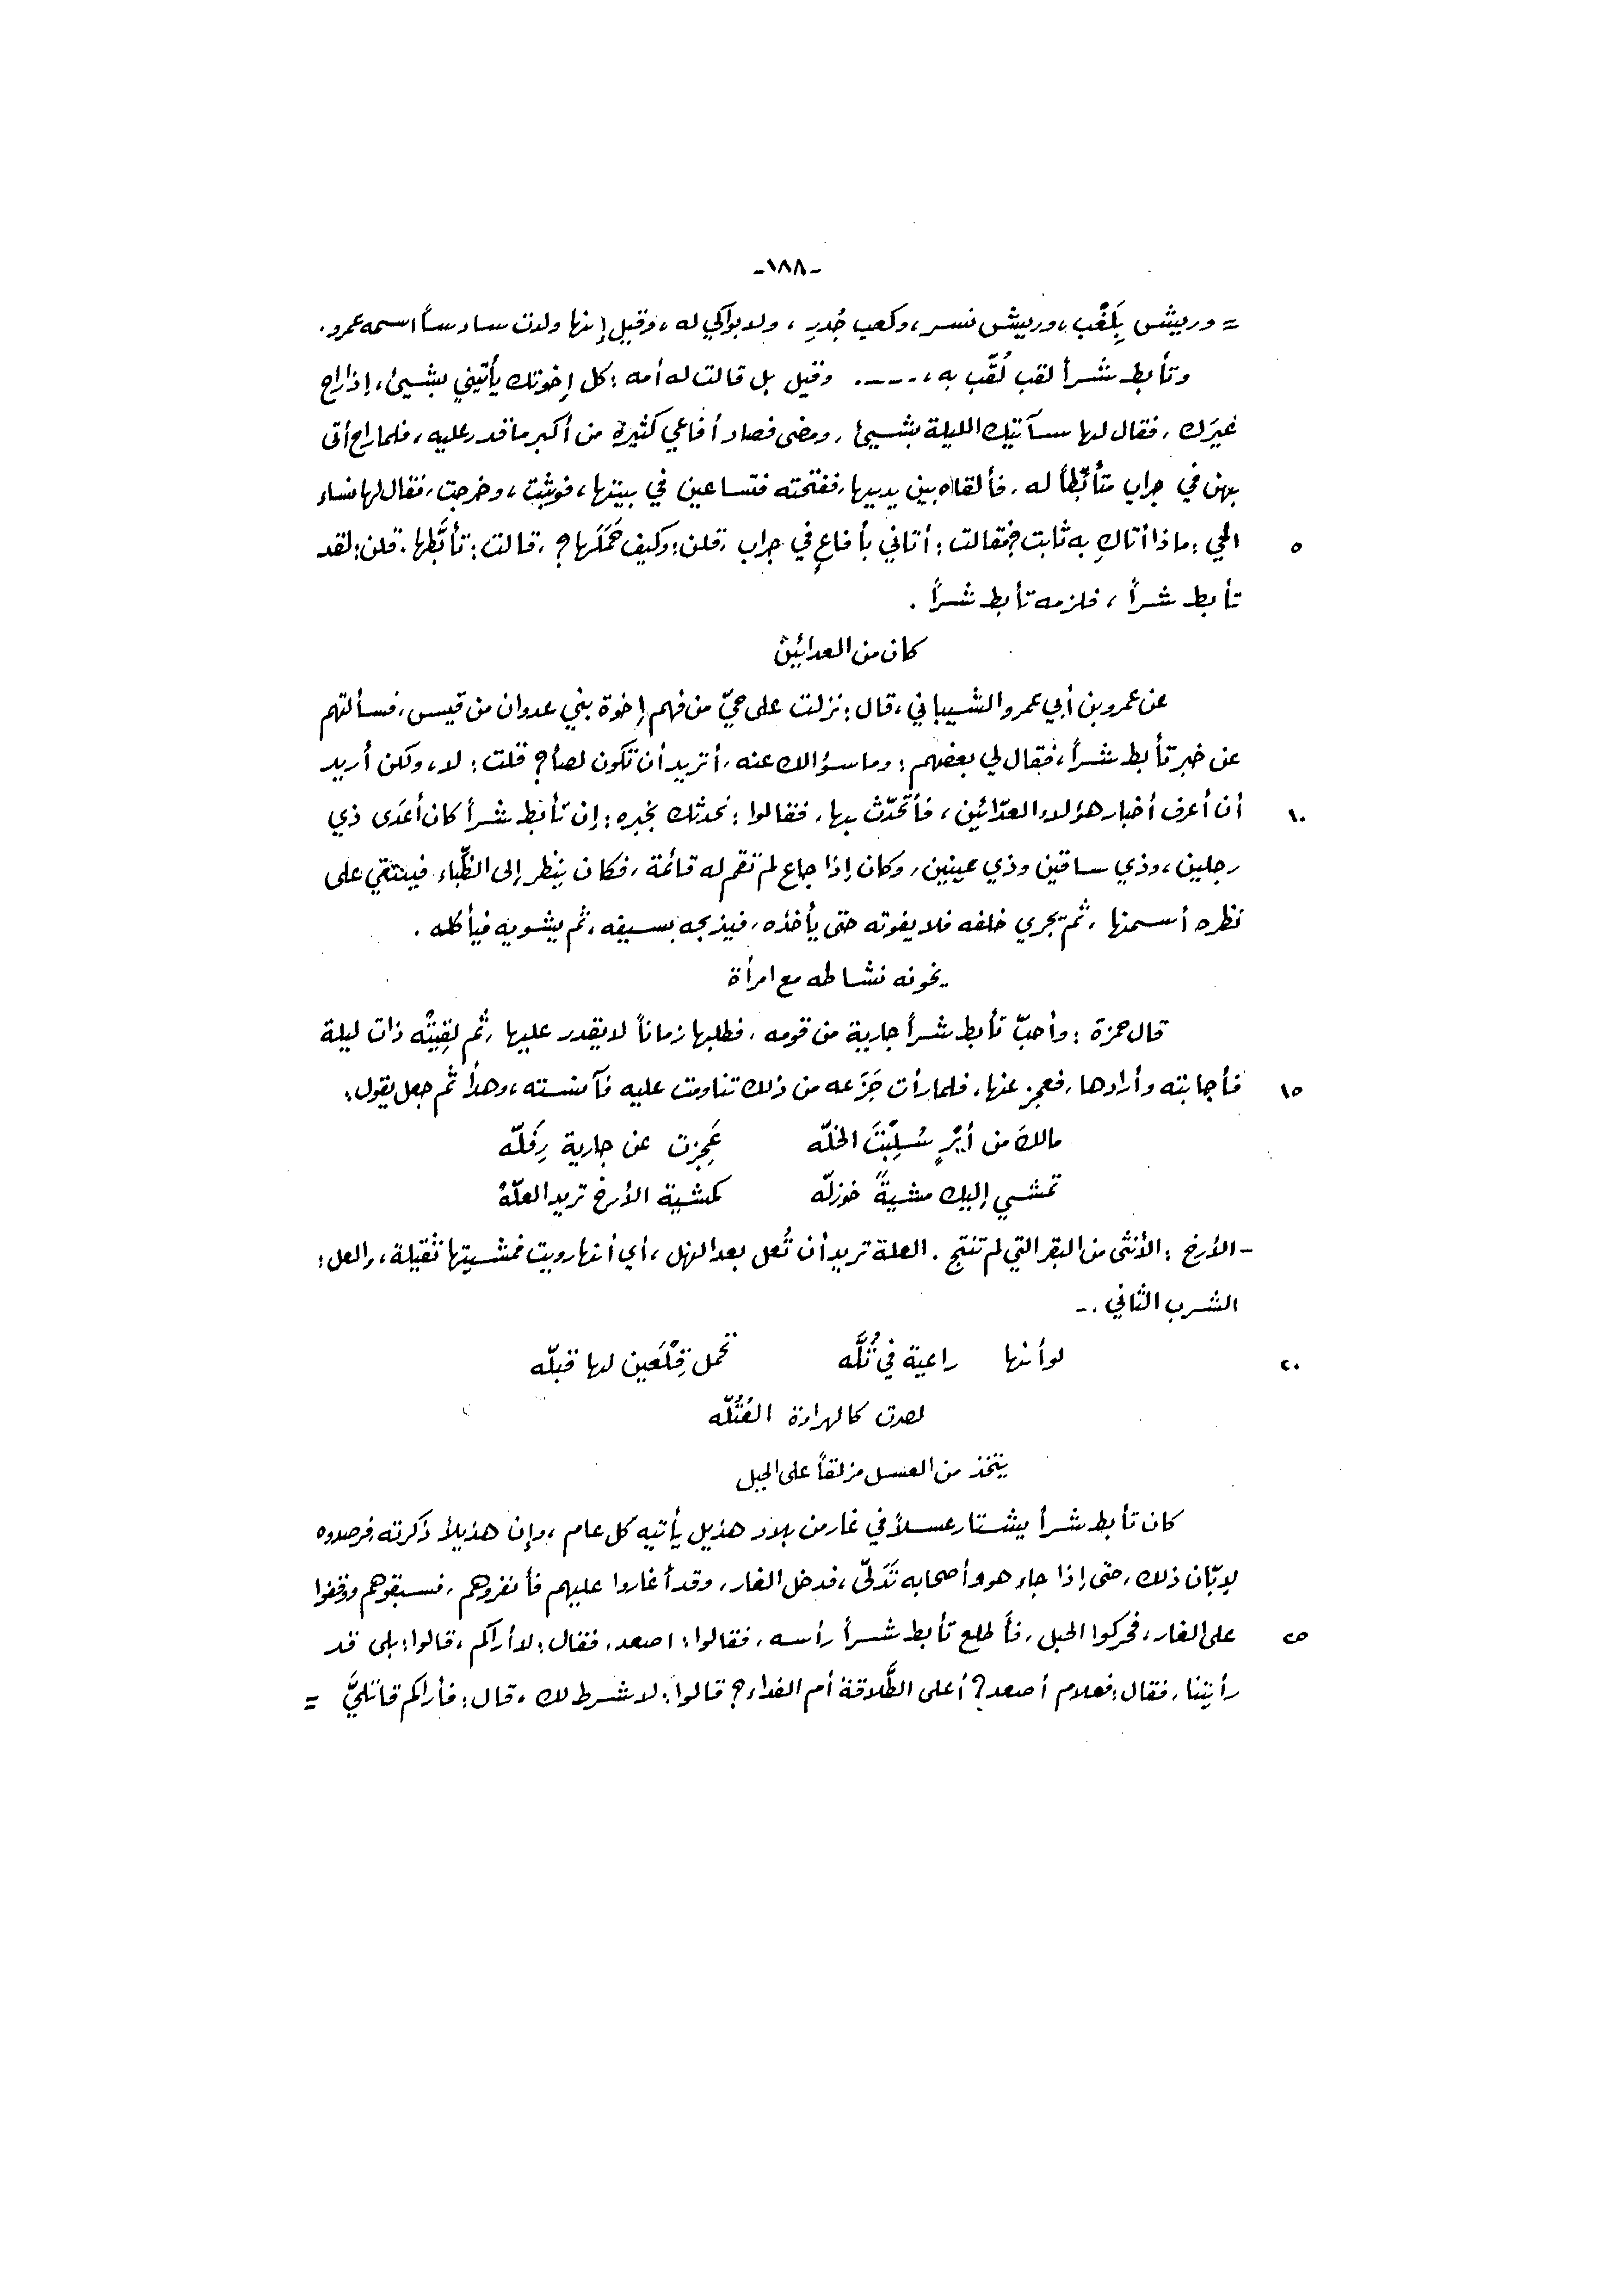 -١٨٨-
= وريش بِلَغْب، وريش نسر، وكعب جُدرِ، ولا بواكي له، وقيل إنها ولدت سادساً اسمه عمرو.
وتأبط شراً لقب لُقّب به، ..... وقيل بل قالت له أمه: كل إخوتك يأتيني بشيئ، إذا راح
غيرَك، فقال لها سآتيك الليلة بشيئ، ومضى فصاد أفاعي كثيرة من أكبر ما قدر عليه، فلما راح أتى
بهن في جراب متأبّطاً له، فألقاه بين يديها، ففتحته فتساعين في بيتها، فوثبت، وخرجت، فقال لها نساء
٥ الحي: ماذا أتاكِ به ثابت؟ فقالت: أتاني بأفاعٍ في جراب، قلن: وكيف حَمَلَها؟، قالت: تأبَّطها، قلن: لقد
تأبط شراً، فلزمه تأبط شراً.
كان من العدائين
عن عمرو بن أبي عمرو الشيباني، قال: نزلت على حيّ من فهم إخوة بني عدوان من قيس، فسألتهم
عن خبر تأبط شراً، فقال لي بعضهم: وما سؤالك عنه، أتريد أن تكون لصاً؟ قلت: لا، ولكن أريد
١٠ أن أعرف أخبار هؤلاء العدّائين، فأتحدّث بها، فقالوا: نحدثك بخبره: إن تأبط شراً كان أعدَى ذي
رجلين، وذي ساقين وذي عينين، وكان إذا جاع لم تقم له قائمة، فكان ينظر إلى الظّباء فينتقي على
نظره أسمنها، ثم يجري خلفه فلا يفوته حتى يأخذه، فيذبحه بسيفه، ثم يشويه فيأكله.
يخونه نشاطه مع امرأة
قال حمزة: وأحبّ تأبط شراً جارية من قومه، فطلبها زماناً لا يقدر عليها، ثم لقِيَتْه ذات ليلة
١٥ فأجابته وأرادها، فعجز عنها، فلما رأت جَزَعه من ذلك تناومت عليه فآنسته، وهدأ ثم جعل يقول:
مالكَ من أَيْرٍ سُلِبْتَ الخلّه عَجِزت عن جارية رِفَلّه
تمشي إليك مشيةً خوزلّه كمشية الأرخ تريد العلّهْ
- الأرخ: الأنثى من البقر التي لم تنتج. العلة تريد أن تُعل بعد النهل، أي أنها رويت فمشيتها ثقيلة، والعل:
الشرب الثاني. -
٢٠ لو أنها راعية في ثُلَّه تحمل قِلْعَين لها قبلّه
لصرت كالهراوة العُتُلّه
يتخذ من العسل مزلقاً على الجبل
كان تأبط شراً يشتار عسلاً في غار من بلاد هذيل يأتيه كل عام، وإن هذيلاً ذكرته فرصدوه
لإبّان ذلك، حتى إذا جاء هو وأصحابه تَدَلّى، فدخل الغار، وقد أغاروا عليهم فأنفروهم، فسبقوهم ووقفوا
٢٥ على الغار، فحركوا الحبل، فأطلع تأبط شراً رأسه، فقالوا: اصعد، فقال: لا أراكم، قالوا: بلى قد
رأيتنا، فقال: فعلام أصعد؟ أعلى الطَّلاقة أم الفداء؟ قالوا: لا شرط لك، قال: فأراكم قاتليَّ =